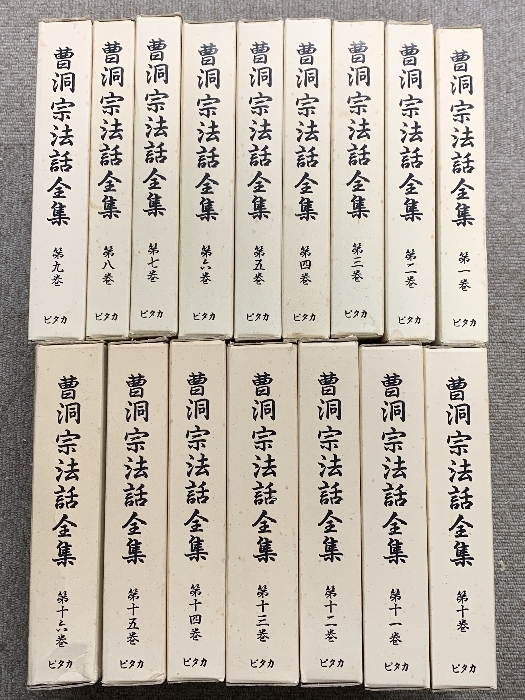 曹洞宗法話全集 第一巻 ピタカ
曹洞宗法話全集 第二巻 ピタカ
曹洞宗法話全集 第三巻 ピタカ
曹洞宗法話全集 第四巻 ピタカ
曹洞宗法話全集 第五巻 ピタカ
曹洞宗法話全集 第六巻 ピタカ
曹洞宗法話全集 第七巻 ピタカ
曹洞宗法話全集 第八巻 ピタカ
曹洞宗法話全集 第九巻 ピタカ
曹洞宗法話全集 第十巻 ピタカ
曹洞宗法話全集 第十一巻 ピタカ
曹洞宗法話全集 第十二巻 ピタカ
曹洞宗法話全集 第十三巻 ピタカ
曹洞宗法話全集 第十四巻 ピタカ
曹洞宗法話全集 第十五巻 ピタカ
曹洞宗法話全集 第十六巻 ピタカ